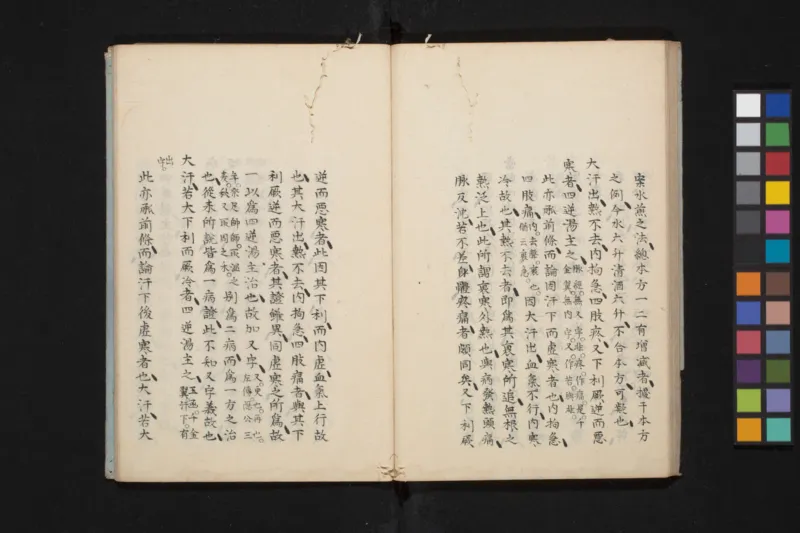 案水煎之法總本方一二有增減者據于本方
之例今水六升清酒六升不合本方可疑也
大汗出熱不去内拘急四肢疼又下利厥逆而惡
寒者四逆湯主之
此亦承前條而論因汗下而虛寒者也内拘急
四肢痛因大汗出血氣不行内寒
冷故也其熱不去者即爲其裏寒所追無根之
熱泛上也此所謂裏寒外熱也與病發熱頭痛
脉反沈若不差身體疼痛者頗同矣又下利厥
逆而惡寒者此因其下利而内虛血氣上行故
也其大汗出熱不去内拘急四肢痛者與其下
利厥逆而惡寒者其證雖異同虛寒之所爲故
一以爲四逆湯主治也故加又字
別爲二病而爲一方之治
也從來所說皆爲一病證此不知又字義故也
大汗若大下利而厥冷者四逆湯主之
此亦承前條而論汗下後虛寒者也大汗若大